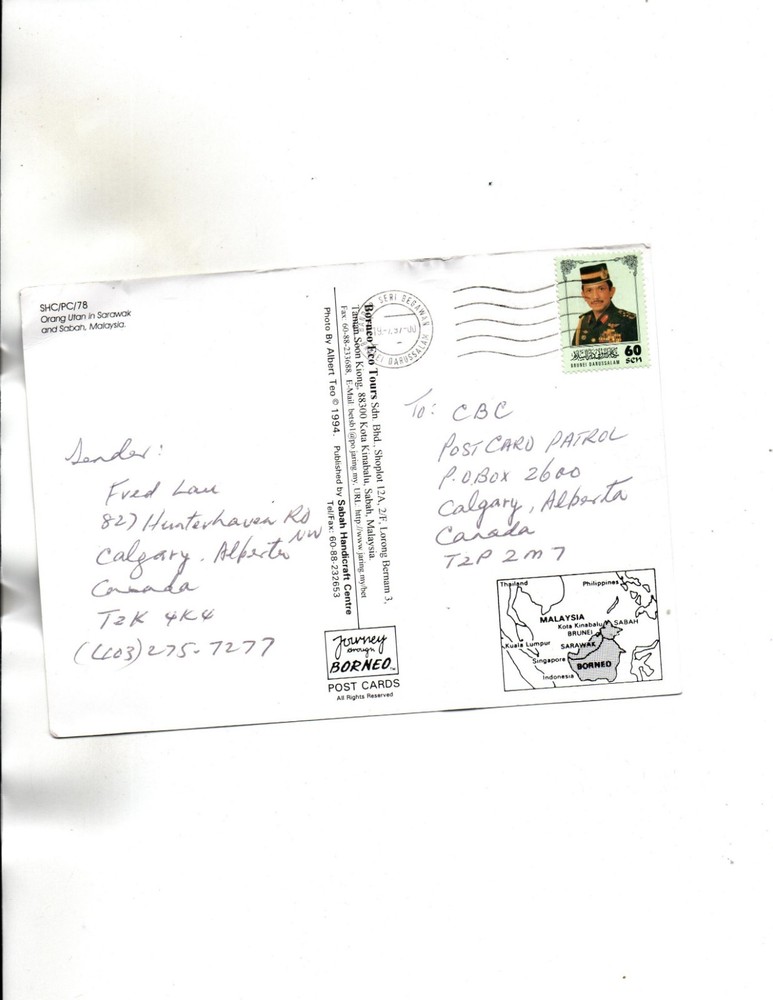 SHC/PC/78
Orang Utan in Sarawak
and Sabah, Malaysia.
Sender:
Fred Lau
827 Hunterhaven Rd
NW
Calgary, Alberta
Canada
T2K 4K4
(403) 275-7277
Photo By Albert Teo © 1994. Published by Sabah Handicraft Centre
Tel/Fax: 60-88-232653
Borneo Eco Tours Sdn. Bhd., Shoplot 12A, 2/F, Lorong Bernam 3,
Taman Soon Kiong, 88300 Kota Kinabalu, Sabah, Malaysia.
Fax: 60-88-233688, E-Mail: betsb1@po.jaring.my, URL: http://www.jaring.my/bet
Journey through
BORNEO
POST CARDS
All Rights Reserved
SERI BEGAWAN
DARUSSALAM
60
sen
BRUNEI DARUSSALAM
To: CBC
POSTCARD PATROL
P.O BOX 2600
Calgary, Alberta
Canada
T2P 2M7
Thailand
Philippines
MALAYSIA
Kota Kinabalu
SABAH
BRUNEI
Kuala Lumpur
SARAWAK
Singapore
BORNEO
Indonesia